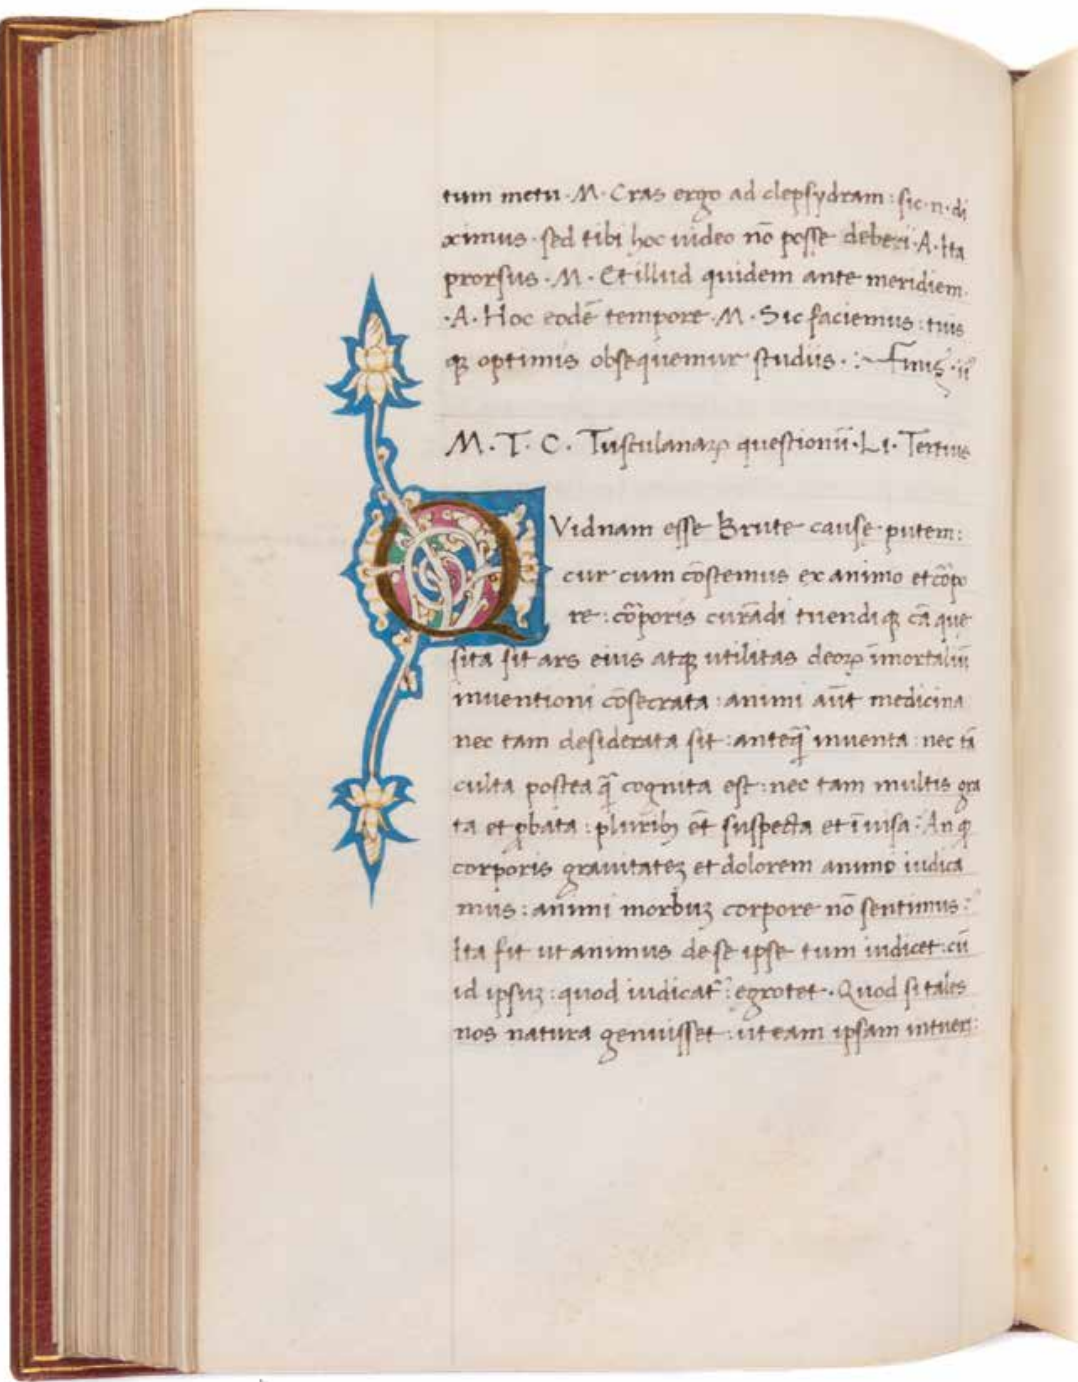 tum metu · M · Cras ergo ad clepsydram : sic · n · di
ximus · sed tibi hoc uideo nō posse deberi · A · Ita
prorsus · M · Et illud quidem ante meridiem ·
· A · Hoc eodē tempore · M · Sic faciemus : tuis
qꝫ optimis obsequemur studiis · : ~ Finis · ii
M · T · C · Tusculanaꝝ questionū · Li · Tertius
QVidnam esse Brute cause putem :
cur cum cōstemus ex animo et cōpo
re : cōporis curādi tuendiqꝫ cā que
sita sit ars eius atqꝫ utilitas deoꝝ īmortaliū
inuentioni cōsecrata : animi aūt medicina
nec tam desiderata sit : anteq̄ inuenta : nec tā
culta postea q̄ cognita est : nec tam multis gra
ta et ꝓbata : pluribꝫ ēt suspecta et īuisa : An qͥ
corporis grauitateꝫ et dolorem animo iudica
mus : animi morbuꝫ corpore nō sentimus :
Ita fit ut animus de se ipse tum iudicet : cū
id ipsuꝫ : quod iudicat̄ : egrotet · Quod si tales
nos natura genuisset : ut eam ipsam intueri :